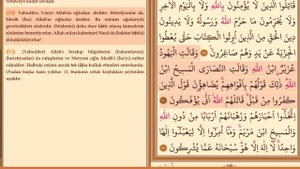 verinceye kadar savaşın.
(30) Yahudiler, Uzeyr Allah'ın oğludur, dediler. Hıristiyanlar da,
Mesih (İsa) Allah'ın oğludur dediler. Bu onların ağızlarıyla
geveledikleri sözlerdir. (Sözlerini) daha önce kâfir olmuş kimselerin
sözlerine benzetiyorlar. Allah onları kahretsin! Nasıl da (haktan bâtıla)
döndürülüyorlar!
(31) (Yahudiler) Allah'ı bırakıp bilginlerini (hahamlarını);
(hıristiyanlar) da rahiplerini ve Meryem oğlu Mesîh'i (İsa'yı) rabler
edindiler. Halbuki onlara ancak tek ilâha kulluk etmeleri emrolundu.
O'ndan başka tanrı yoktur. O, bunların ortak koştukları şeylerden
uzaktır.
وَلَا يُحَرِّمُونَ مَا حَرَّمَ اللَّهُ وَرَسُولُهُ وَلَا يَدِينُونَ
دِينَ الْحَقِّ مِنَ الَّذِينَ أُوتُوا الْكِتَابَ حَتَّى يُعْطُوا
الْجِزْيَةَ عَنْ يَدٍ وَهُمْ صَاغِرُونَ وَقَالَتِ الْيَهُودُ
عُزَيْرٌ ابْنُ اللَّهِ وَقَالَتِ النَّصَارَى الْمَسِيحُ ابْنُ
اللَّهِ ذَلِكَ قَوْلُهُمْ بِأَفْوَاهِهِمْ يُضَاهِؤُنَ قَوْلَ الَّذِينَ
كَفَرُوا مِنْ قَبْلُ قَاتَلَهُمُ اللَّهُ أَنَّى يُؤْفَكُونَ
اتَّخَذُوا أَحْبَارَهُمْ وَرُهْبَانَهُمْ أَرْبَابًا مِنْ دُونِ
اللَّهِ وَالْمَسِيحَ ابْنَ مَرْيَمَ وَمَا أُمِرُوا إِلَّا لِيَعْبُدُوا إِلَهًا
وَاحِدًا لَا إِلَهَ إِلَّا هُوَ سُبْحَانَهُ عَمَّا يُشْرِكُونَ